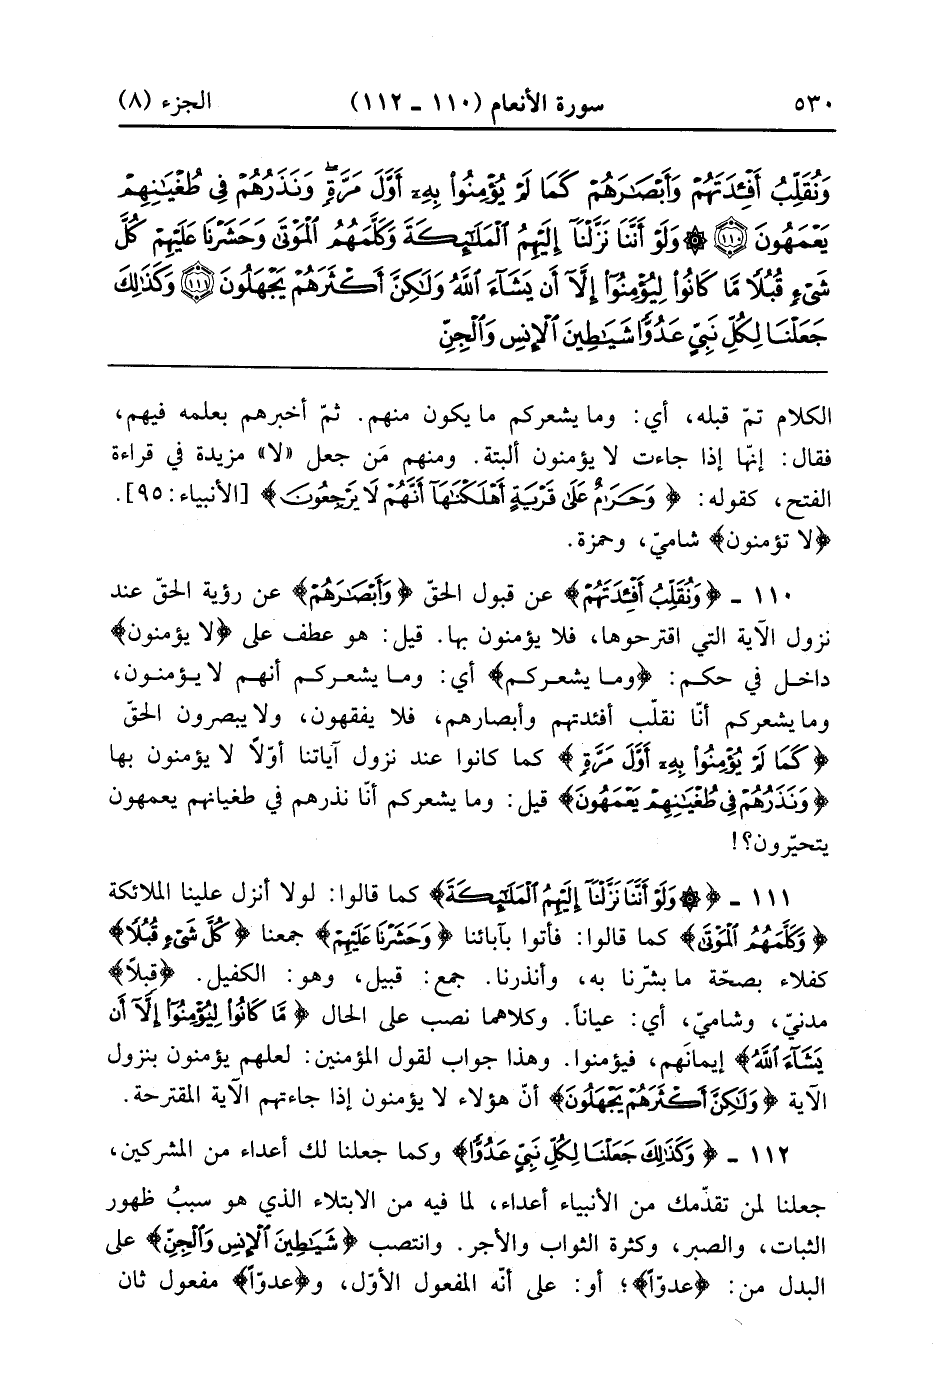 ٥٣٠ سورة الأنعام (١١٠ - ١١٢) الجزء (٨)
وَنُقَلِّبُ أَفْـِٔدَتَهُمْ وَأَبْصَـٰرَهُمْ كَمَا لَمْ يُؤْمِنُوا۟ بِهِۦٓ أَوَّلَ مَرَّةٍۢ وَنَذَرُهُمْ فِى طُغْيَـٰنِهِمْ
يَعْمَهُونَ ١١٠ ۞ وَلَوْ أَنَّنَا نَزَّلْنَآ إِلَيْهِمُ ٱلْمَلَـٰٓئِكَةَ وَكَلَّمَهُمُ ٱلْمَوْتَىٰ وَحَشَرْنَا عَلَيْهِمْ كُلَّ
شَىْءٍۢ قُبُلًا مَّا كَانُوا۟ لِيُؤْمِنُوٓا۟ إِلَّآ أَن يَشَآءَ ٱللَّهُ وَلَـٰكِنَّ أَكْثَرَهُمْ يَجْهَلُونَ ١١١ وَكَذَٰلِكَ
جَعَلْنَا لِكُلِّ نَبِىٍّ عَدُوًّا شَيَـٰطِينَ ٱلْإِنسِ وَٱلْجِنِّ
الكلام تمّ قبله، أي: وما يشعركم ما يكون منهم. ثمّ أخبرهم بعلمه فيهم،
فقال: إنّها إذا جاءت لا يؤمنون ألبتة. ومنهم مَن جعل «لا» مزيدة في قراءة
الفتح، كقوله: ﴿وَحَرَٰمٌ عَلَىٰ قَرْيَةٍ أَهْلَكْنَـٰهَآ أَنَّهُمْ لَا يَرْجِعُونَ﴾ [الأنبياء: ٩٥].
﴿لا تؤمنون﴾ شاميّ، وحمزة.
١١٠ - ﴿وَنُقَلِّبُ أَفْـِٔدَتَهُمْ﴾ عن قبول الحقّ ﴿وَأَبْصَـٰرَهُمْ﴾ عن رؤية الحقّ عند
نزول الآية التي اقترحوها، فلا يؤمنون بها. قيل: هو عطف على ﴿لا يؤمنون﴾
داخل في حكم: ﴿وما يشعركم﴾ أي: وما يشعركم أنهم لا يؤمنون،
وما يشعركم أنّا نقلّب أفئدتهم وأبصارهم، فلا يفقهون، ولا يبصرون الحقّ
﴿كَمَا لَمْ يُؤْمِنُوا۟ بِهِۦٓ أَوَّلَ مَرَّةٍ﴾ كما كانوا عند نزول آياتنا أوّلاً لا يؤمنون بها
﴿وَنَذَرُهُمْ فِى طُغْيَـٰنِهِمْ يَعْمَهُونَ﴾ قيل: وما يشعركم أنّا نذرهم في طغيانهم يعمهون
يتحيّرون؟!
١١١ - ﴿۞ وَلَوْ أَنَّنَا نَزَّلْنَآ إِلَيْهِمُ ٱلْمَلَـٰٓئِكَةَ﴾ كما قالوا: لولا أنزل علينا الملائكة
﴿وَكَلَّمَهُمُ ٱلْمَوْتَىٰ﴾ كما قالوا: فأتوا بآبائنا ﴿وَحَشَرْنَا عَلَيْهِمْ﴾ جمعنا ﴿كُلَّ شَىْءٍۢ قُبُلًا﴾
كفلاء بصحّة ما بشّرنا به، وأنذرنا. جمع: قبيل، وهو: الكفيل. ﴿قِبلاً﴾
مدنيّ، وشاميّ، أي: عياناً. وكلاهما نصب على الحال ﴿مَّا كَانُوا۟ لِيُؤْمِنُوٓا۟ إِلَّآ أَن
يَشَآءَ ٱللَّهُ﴾ إيمانَهم، فيؤمنوا. وهذا جواب لقول المؤمنين: لعلهم يؤمنون بنزول
الآية ﴿وَلَـٰكِنَّ أَكْثَرَهُمْ يَجْهَلُونَ﴾ أنّ هؤلاء لا يؤمنون إذا جاءتهم الآية المقترحة.
١١٢ - ﴿وَكَذَٰلِكَ جَعَلْنَا لِكُلِّ نَبِىٍّ عَدُوًّا﴾ وكما جعلنا لك أعداء من المشركين،
جعلنا لمن تقدّمك من الأنبياء أعداء، لما فيه من الابتلاء الذي هو سببُ ظهور
الثبات، والصبر، وكثرة الثواب والأجر. وانتصب ﴿شَيَـٰطِينَ ٱلْإِنسِ وَٱلْجِنِّ﴾ على
البدل من: ﴿عدوّاً﴾؛ أو: على أنّه المفعول الأوّل، و﴿عدوّاً﴾ مفعول ثان